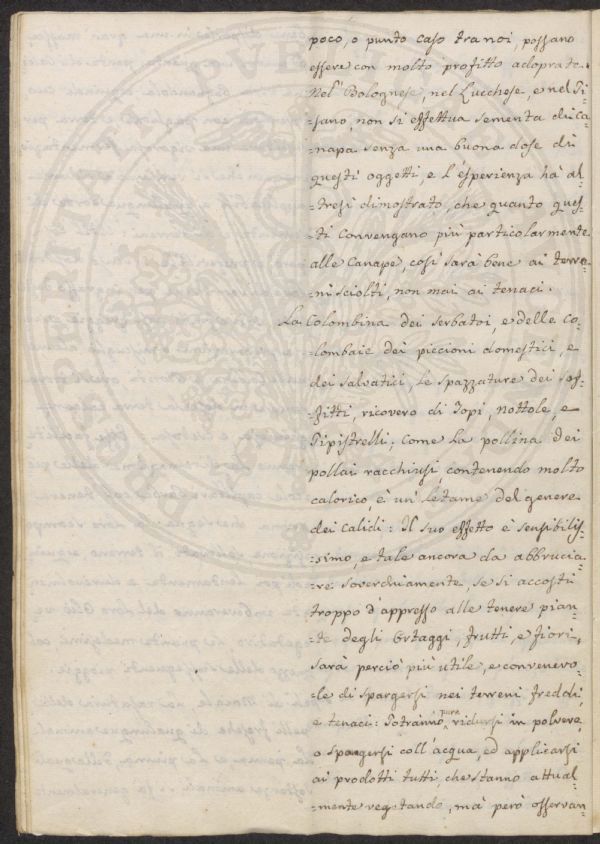 poco, o punto caso tra noi, possano
essere con molto profitto adoprate.
Nel' Bolognese, nel Lucchese, e nel Pi-
=sano, non si effettua sementa di ca-
=napa senza una buona dose di
questi oggetti, e l'esperienza hà al-
=tresì dimostrato, che quanto ques-
=ti convengano più particolarmente
alle Canape, così sarà bene ai terre-
=ni sciolti, non mai ai tenaci.
La Colombina dei serbatoi, e delle Co-
lombaie dei piccioni domestici, e
dei salvatici, le spazzature dei sof-
=fitti, ricovero di Topi, nottole, e
Pipistrelli, come la pollina dei
pollai racchiusi, contenendo molto
calorico, è un' letame del genere
dei Calidi: Il suo effetto è sensibilis-
=simo, e tale ancora da abbrucia-
=re soverchiamente, se si accosti
troppo d'appresso alle tenere pian-
=te degli Ortaggi, frutti, e fiori,
sarà perciò più utile, e convenevo-
=le di spargersi nei terreni freddi,
e tenaci: Potranno pure ridursi in polvere,
o spargersi coll'acqua, ed applicarsi
ai prodotti tutti, che stanno attual-
=mente vegetando, mà però osservan